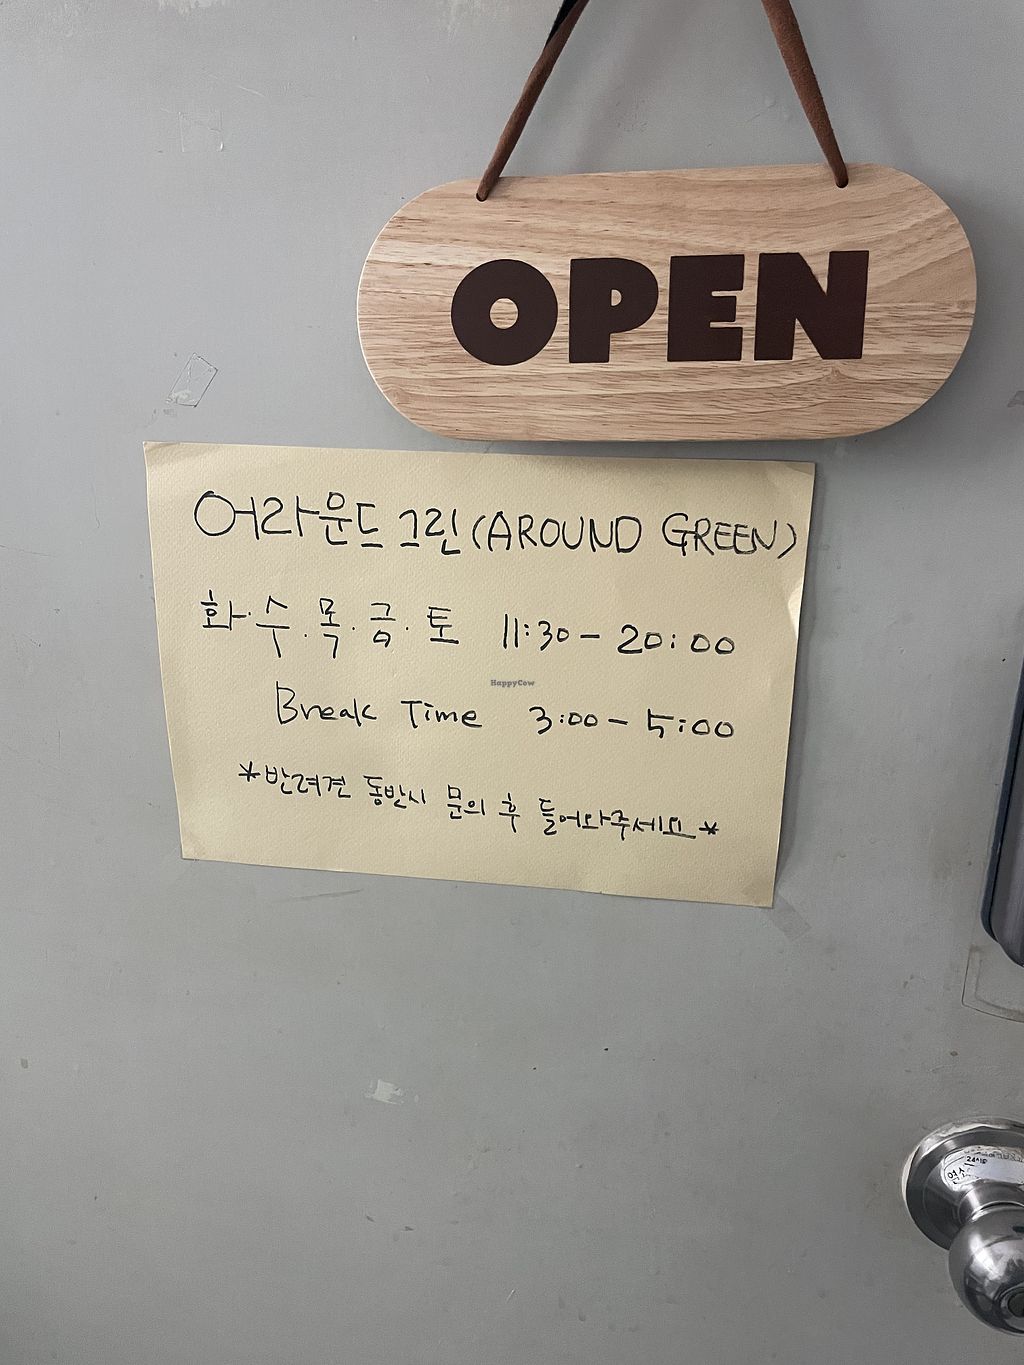 OPEN
어라운드 그린 (AROUND GREEN)
화·수·목·금·토 11:30 - 20:00
HappyCow
Break Time 3:00 - 5:00
*반려견 동반시 문의 후 들어와주세요*